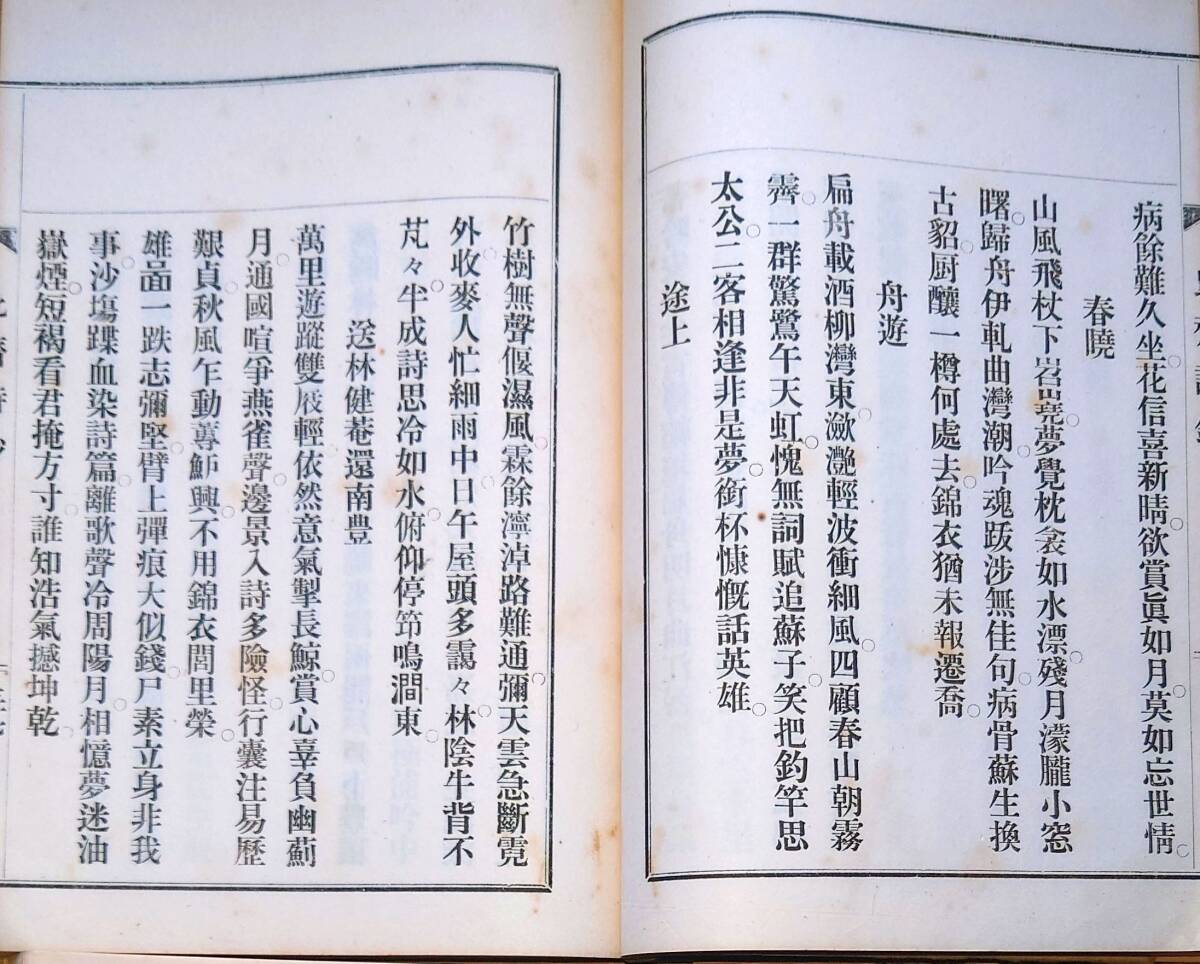 病餘難久坐。花信喜新晴。欲賞眞如月。莫如忘世情。
春曉
山風飛杖下岩嶢。夢覺枕衾如水漂。殘月濛朧小窓
曙。歸舟伊軋曲灣潮。吟魂跋涉無佳句。病骨蘇生換
古貂。厨釀一樽何處去。錦衣猶未報遷喬。
舟遊
扁舟載酒柳灣東。瀲灩輕波衝細風。四顧春山朝霧
霽。一群驚鷺午天虹。愧無詞賦追蘇子。笑把釣竿思
太公。二客相逢非是夢。銜杯慷慨話英雄。
途上
竹樹無聲偃濕風。霖餘濘淖路難通。彌天雲急斷霓
外。收麥人忙細雨中。日午屋頭多靄々。林陰牛背不
芃々。半成詩思冷如水。俯仰停筇鳴澗東。
送林健菴還南豊
萬里遊蹤雙屐輕。依然意氣掣長鯨。賞心辜負幽薊
月。通國喧爭燕雀聲。邊景入詩多險怪。行囊注易歷
艱貞。秋風乍動蓴鱸興。不用錦衣閭里榮。
雄啚一跌志彌堅。臂上彈痕大似錢。尸素立身非我
事。沙塲蹀血染詩篇。離歌聲冷周陽月。相憶夢迷油
嶽煙。短褐看君掩方寸。誰知浩氣撼坤乾。